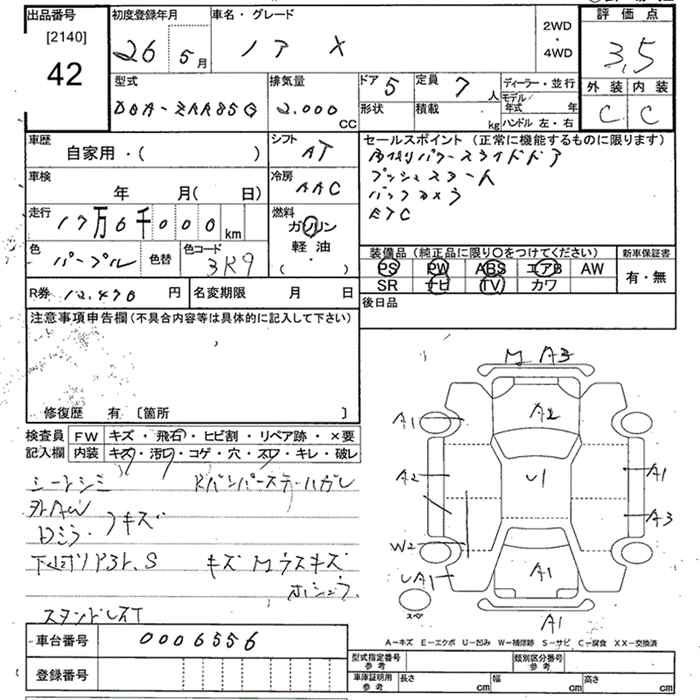 出品番号
[2140]
42
初度登録年月
26 5月
車名・グレード
ノア X
2WD
・
4WD
評価点
3,5
外装 内装
C C
型式
DBA-ZRR85G
排気量
2.000 CC
ドア 5
定員 7 人
形状
積載 kg
ディーラー・並行
モデル/年式 年
ハンドル 左・右
車歴
自家用・( )
シフト
AT
車検
年 月( 日)
冷房
AAC
走行
17万6千000 km
燃料
ガソリン
軽油
・
( )
色
パープル
色替
色コード
3R9
セールスポイント (正常に機能するものに限ります)
両側パワースライドドア
プッシュスタート
バックカメラ
ETC
装備品 (純正品に限り〇をつけてください)
新車保証書
PS PW ABS エアB AW
SR ナビ TV カワ
有・無
R券 12,470 円
名変期限 月 日
後日品
注意事項申告欄 (不具合内容等は具体的に記入して下さい)
修復歴 有 [箇所 ]
検査員
記入欄
FW キズ・飛石・ヒビ割・リペア跡・×要
内装 キズ・汚れ・コゲ・穴・スレ・キレ・破レ
シートシミ
Rバンパーステーハガレ
外AW
Dミラーキズ
下廻り P3ト、S
キズ Mウスキズ
ホシュウ
スタンドレスT
M A3
A1
A2
A2
U1
A1
A3
W2
UA1
A1
A1
スペア
A-キズ E-エクボ U-凹み W-補修跡 S-サビ C-腐食 XX-交換済
車台番号
0006556
登録番号
型式指定番号
参考
類別区分番号
参考
車庫証明用
参考
長さ cm
幅 cm
高さ cm